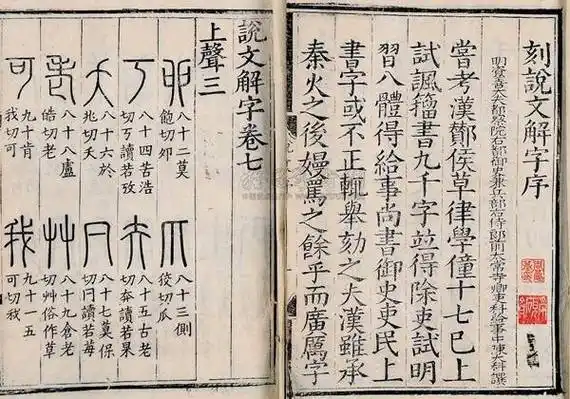 刻說文解字序
明資善大夫都察院右都御史兼兵部右侍郎前太常寺卿吏科給事中陳大科譔
嘗考漢酇侯草律學僮十七巳上
試諷籀書九千字並得除吏試明
習八體得給事尚書御史吏民上
書字或不正輒舉劾之夫漢雖承
秦火之後嫚罵之餘乎而廣厲字
說文解字卷七
上聲三
卯 八十二莫
飽切卯
爪 八十三側
狡切爪
丂 八十四苦浩
切丂讀若攷
夰 八十五古老
切夰讀若杲
夭 八十六於
兆切夭
冃 八十七莫保
切冃讀若
老 八十八盧
皓切老
艸 八十九倉老
切艸俗作草
可 九十肯
我切可
我 九十一五
可切我